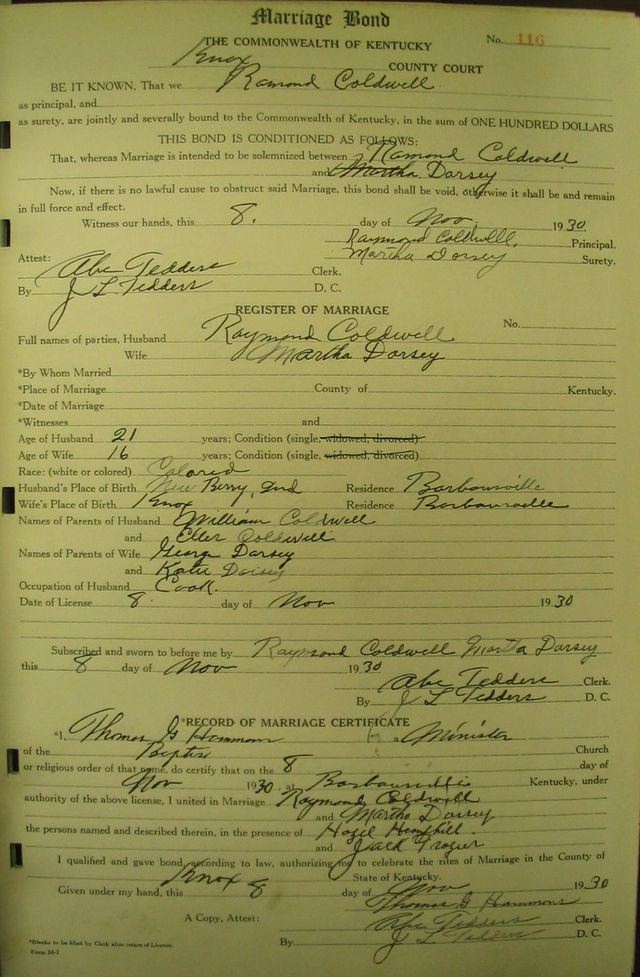 Marriage Bond
THE COMMONWEALTH OF KENTUCKY No. 116
Knox COUNTY COURT
BE IT KNOWN, That we Ramond Coldwell
as principal, and
as surety, are jointly and severally bound to the Commonwealth of Kentucky, in the sum of ONE HUNDRED DOLLARS
THIS BOND IS CONDITIONED AS FOLLOWS:
That, whereas Marriage is intended to be solemnized between Ramond Coldwell
and Martha Dorsey
Now, if there is no lawful cause to obstruct said Marriage, this bond shall be void, otherwise it shall be and remain
in full force and effect.
Witness our hands, this 8. day of Nov. 1930
Raymond Coldwell. Principal.
Martha Dorsey Surety.
Attest:
Abe Tedders Clerk.
By J L Tedders D. C.
REGISTER OF MARRIAGE
No.
Full names of parties, Husband Raymond Coldwell
Wife Martha Dorsey
*By Whom Married
*Place of Marriage County of Kentucky.
*Date of Marriage
*Witnesses and
Age of Husband 21 years; Condition (single, widowed, divorced)
Age of Wife 16 years; Condition (single, widowed, divorced)
Race: (white or colored) Colored
Husband's Place of Birth New Berry, Ind Residence Barbourville
Wife's Place of Birth Knox Residence Barbourville
Names of Parents of Husband William Coldwell
and Eller Coldwell
Names of Parents of Wife George Dorsey
and Katie Dorsey
Occupation of Husband Cook.
Date of License 8 day of Nov 1930
Subscribed and sworn to before me by Raymond Coldwell Martha Dorsey
this 8 day of Nov 1930
Abe Tedders Clerk.
By J L Tedders D. C.
*RECORD OF MARRIAGE CERTIFICATE
*I, Thomas G Hammons a Minister
of the Baptis Church
or religious order of that name, do certify that on the 8 day of
Nov 1930, at Barbourville Kentucky, under
authority of the above license, I united in Marriage Raymond Coldwell
and Martha Dorsey
the persons named and described therein, in the presence of Hazel Hemphill.
and Jack
I qualified and gave bond, according to law, authorizing me to celebrate the rites of Marriage in the County of
Knox State of Kentucky.
Given under my hand, this 8 day of Nov 1930
Thomas G Hammons
A Copy, Attest: Abe Tedders Clerk.
By J L Tedders D. C.
*Blanks to be filled by Clerk after return of License.
Form M-7